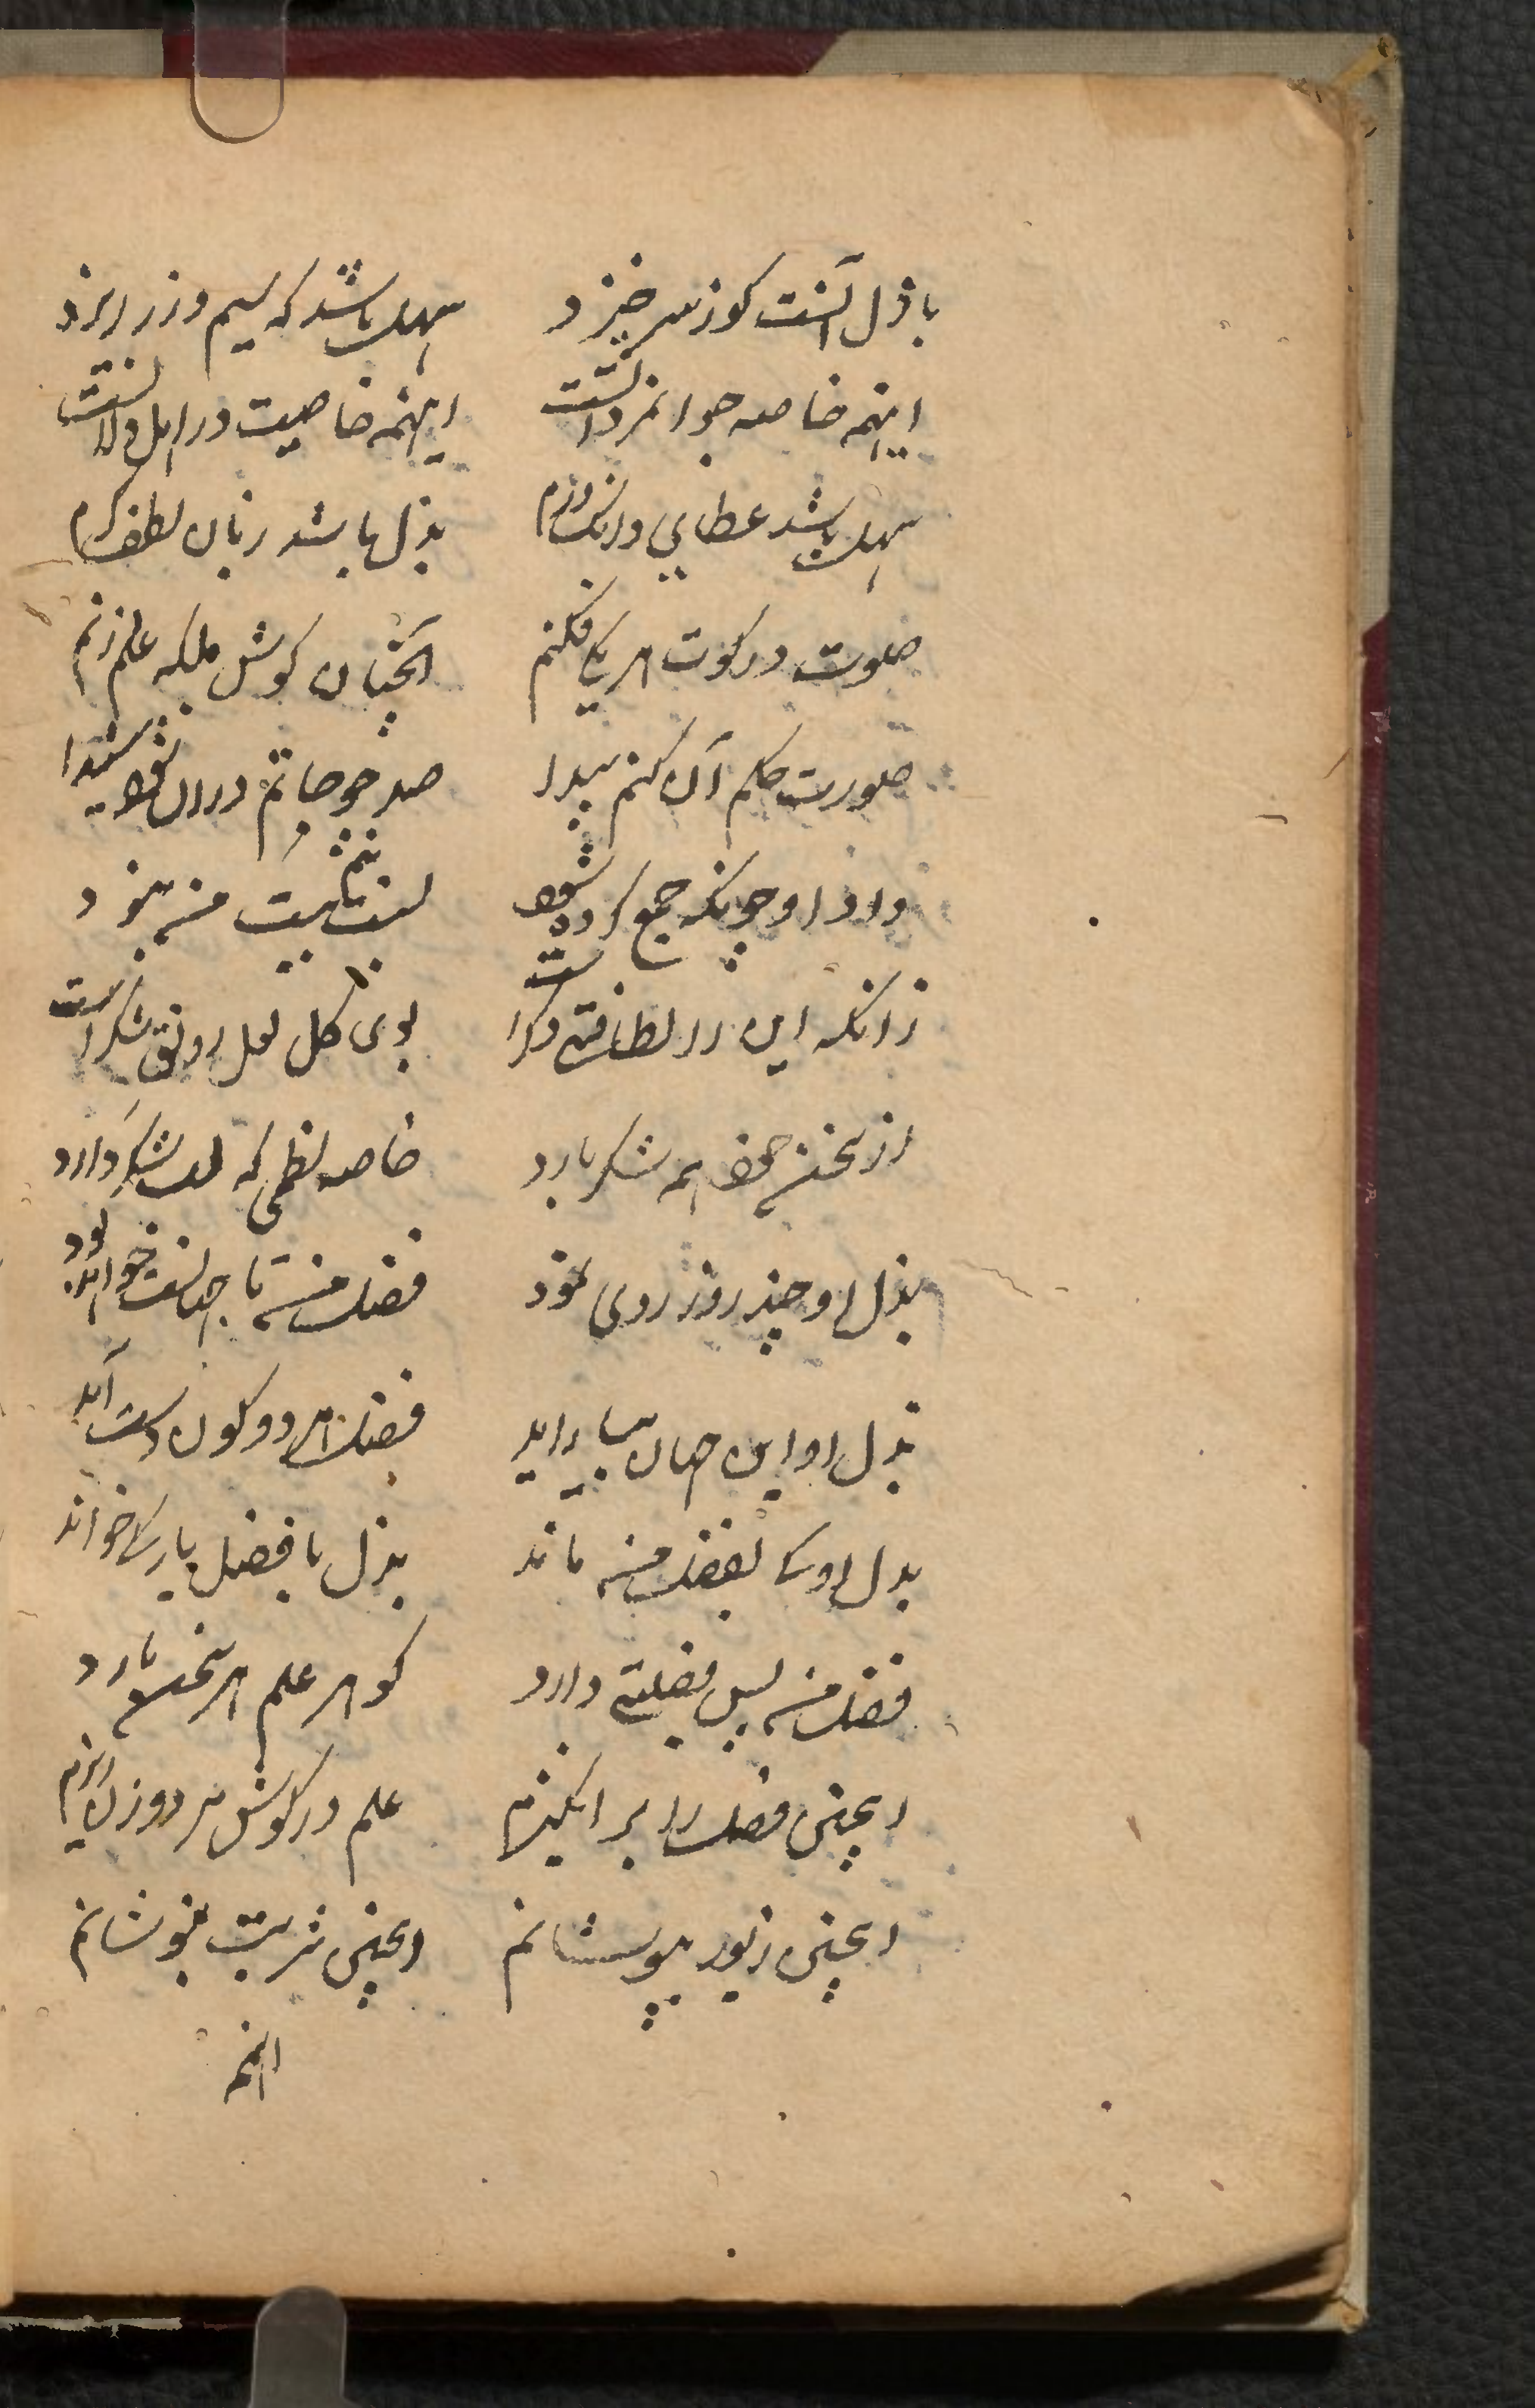 باذل آنست کو ز سر خیزد سهل باشد که سیم و زر ریزد
اینهمه خاصه جوانمردانست اینهمه خاصیت در اهل دلانست
سهل باشد عطای و دانک و درم بذل باشد زبان لطف کرم
صلوت در کوت هر یکی فکنم آنچنان کوش ملکه علم زنم
صورت حکم آن کنم پیدا صد چو حاتم در آن شود شیدا
داد او چونکه جمع کرده شود نسبتش بیت منه نبود
زانکه این را لطافتی دکر است بوی کل لعل رونق شکر است
از سخن چون همه شکر بارد خاصه نظمی که لب شکر دارد
بذل او چند روز روی نمود فضل منه تا جهانست خواهد بود
بذل او این جهان بیاراید فضل هر دو کون دست آید
بذل او کی بفضل منه ماند بذل با فضل یار کی خواند
فضل منه بس فضیلتی دارد کوهر علم هر سخن بارد
اینچنین فضل را برانکیزم علم در کوش مرد و زن ریزم
اینچنین زیور بپوشانم اینچنین شربت بنوشانم
اینهمه